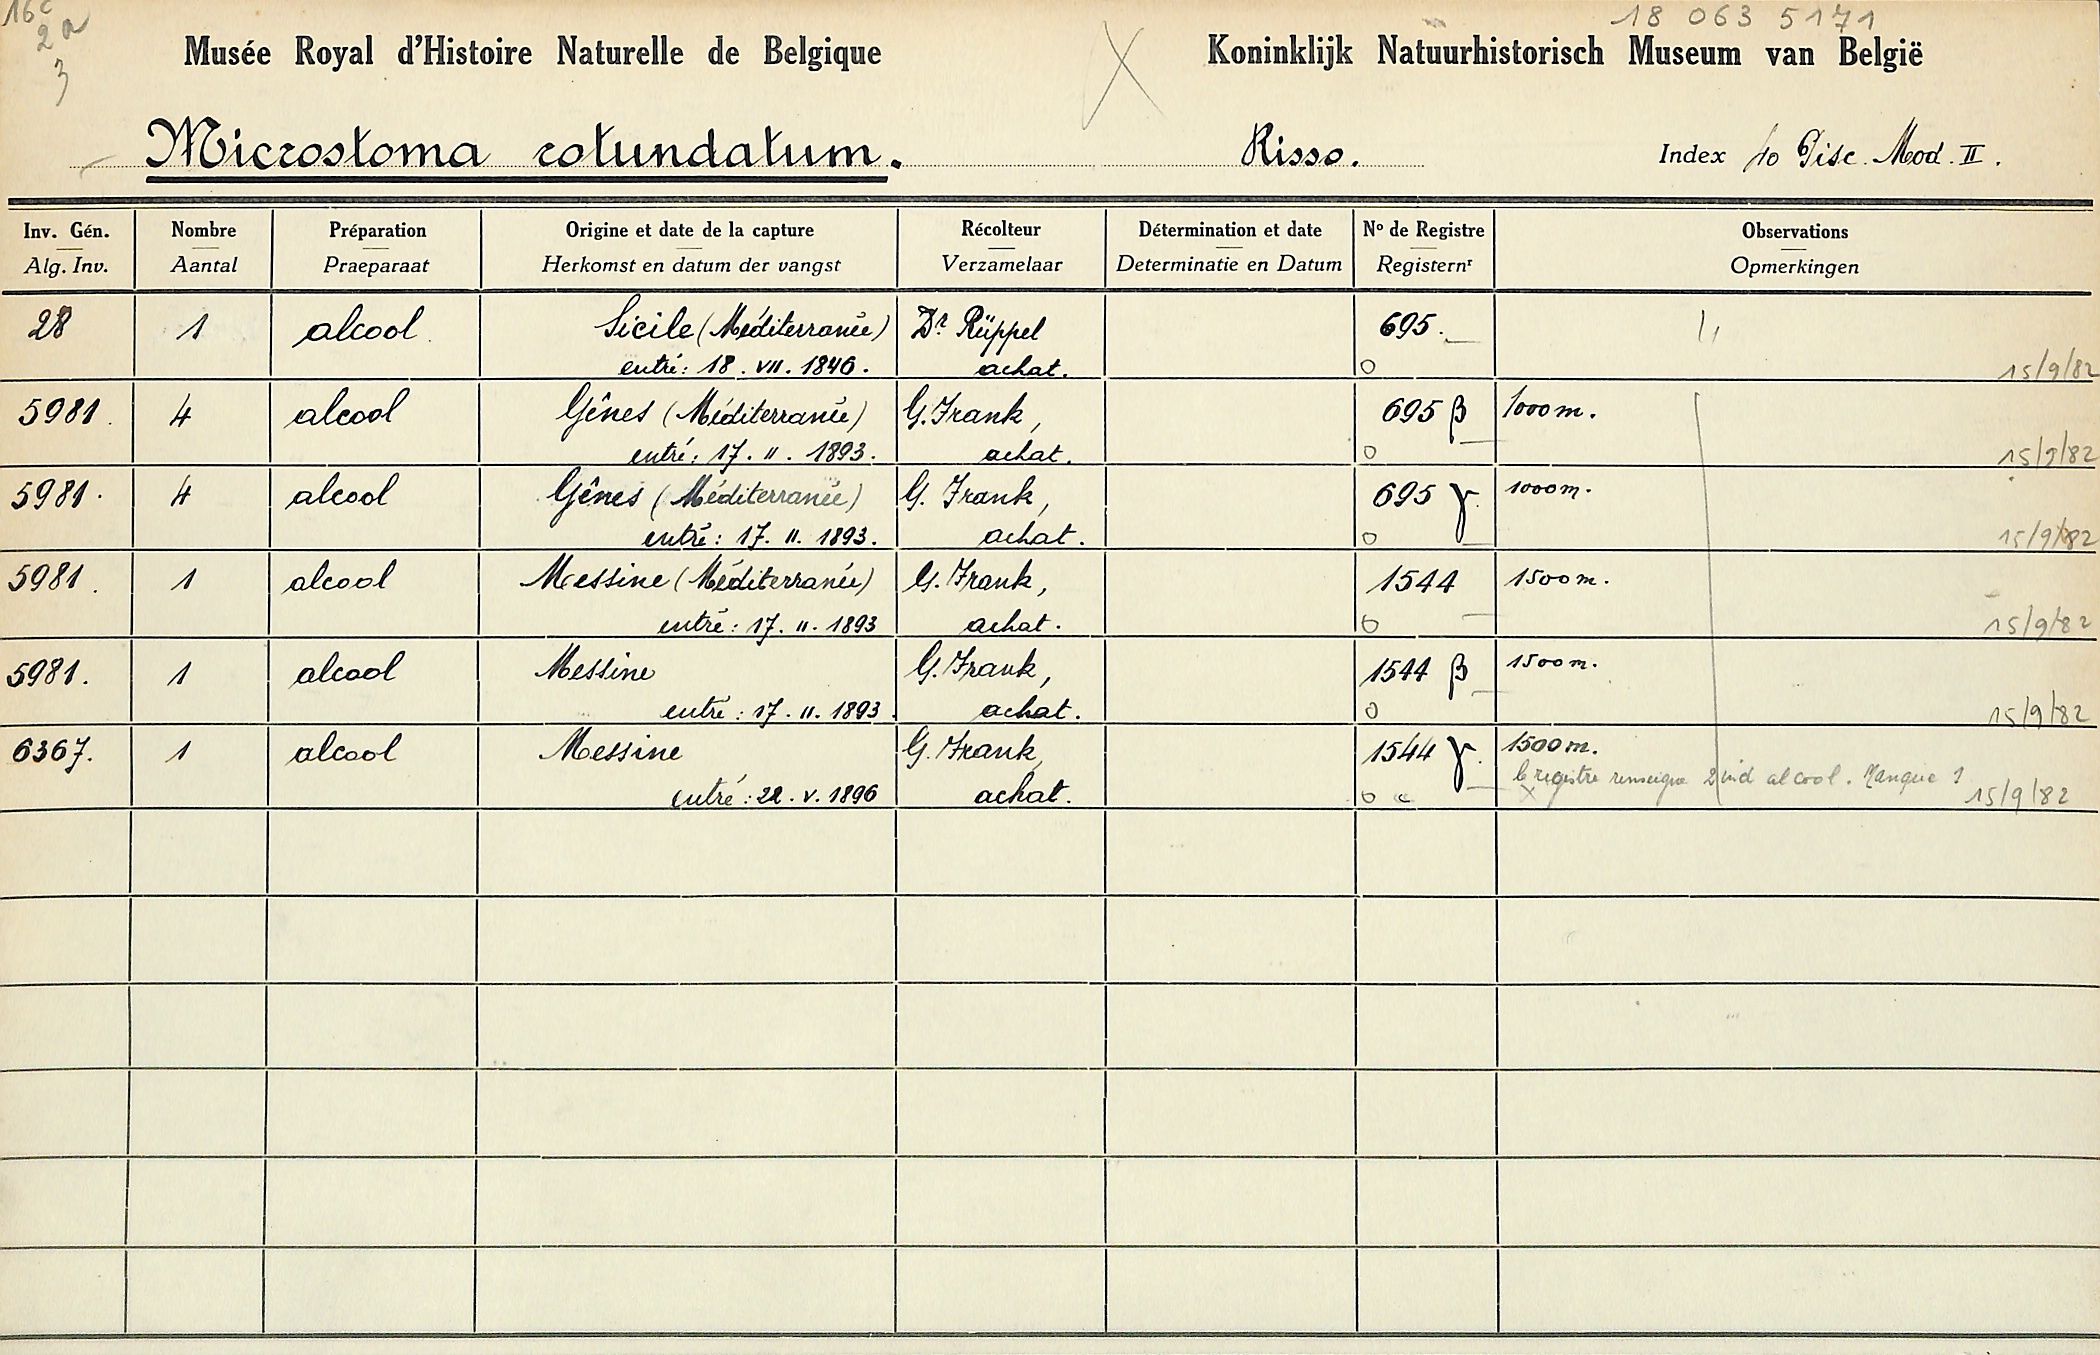 16c
2a
3
18 063 5171
Musée Royal d'Histoire Naturelle de Belgique
Koninklijk Natuurhistorisch Museum van België
Microstoma rotundatum. Risso. Index 40 Pisc. Mod. II.
Inv. Gén. Nombre Préparation Origine et date de la capture Récolteur Détermination et date Nº de Registre Observations
Alg. Inv. Aantal Praeparaat Herkomst en datum der vangst Verzamelaar Determinatie en Datum Registernr Opmerkingen
28 1 alcool Sicile (Méditerranée) Dr Rüppel 695.
entré: 18. VII. 1846. achat. 0 15/9/82
5981. 4 alcool Gênes (Méditerranée) G. Frank, 695 β 1000 m.
entré: 17. II. 1893. achat. 0 15/9/82
5981. 4 alcool Gênes (Méditerranée) G. Frank, 695 γ. 1000 m.
entré: 17. II. 1893. achat. 0 15/9/82
5981. 1 alcool Messine (Méditerranée) G. Frank, 1544 1500 m.
entré: 17. II. 1893 achat. 0 15/9/82
5981. 1 alcool Messine G. Frank, 1544 β 1500 m.
entré: 17. II. 1893. achat. 0 15/9/82
6367. 1 alcool Messine G. Frank, 1544 γ. 1500 m.
le registre renseigne 2 ind alcool. Manque 1
entré: 22. V. 1896 achat. 0 c x 15/9/82